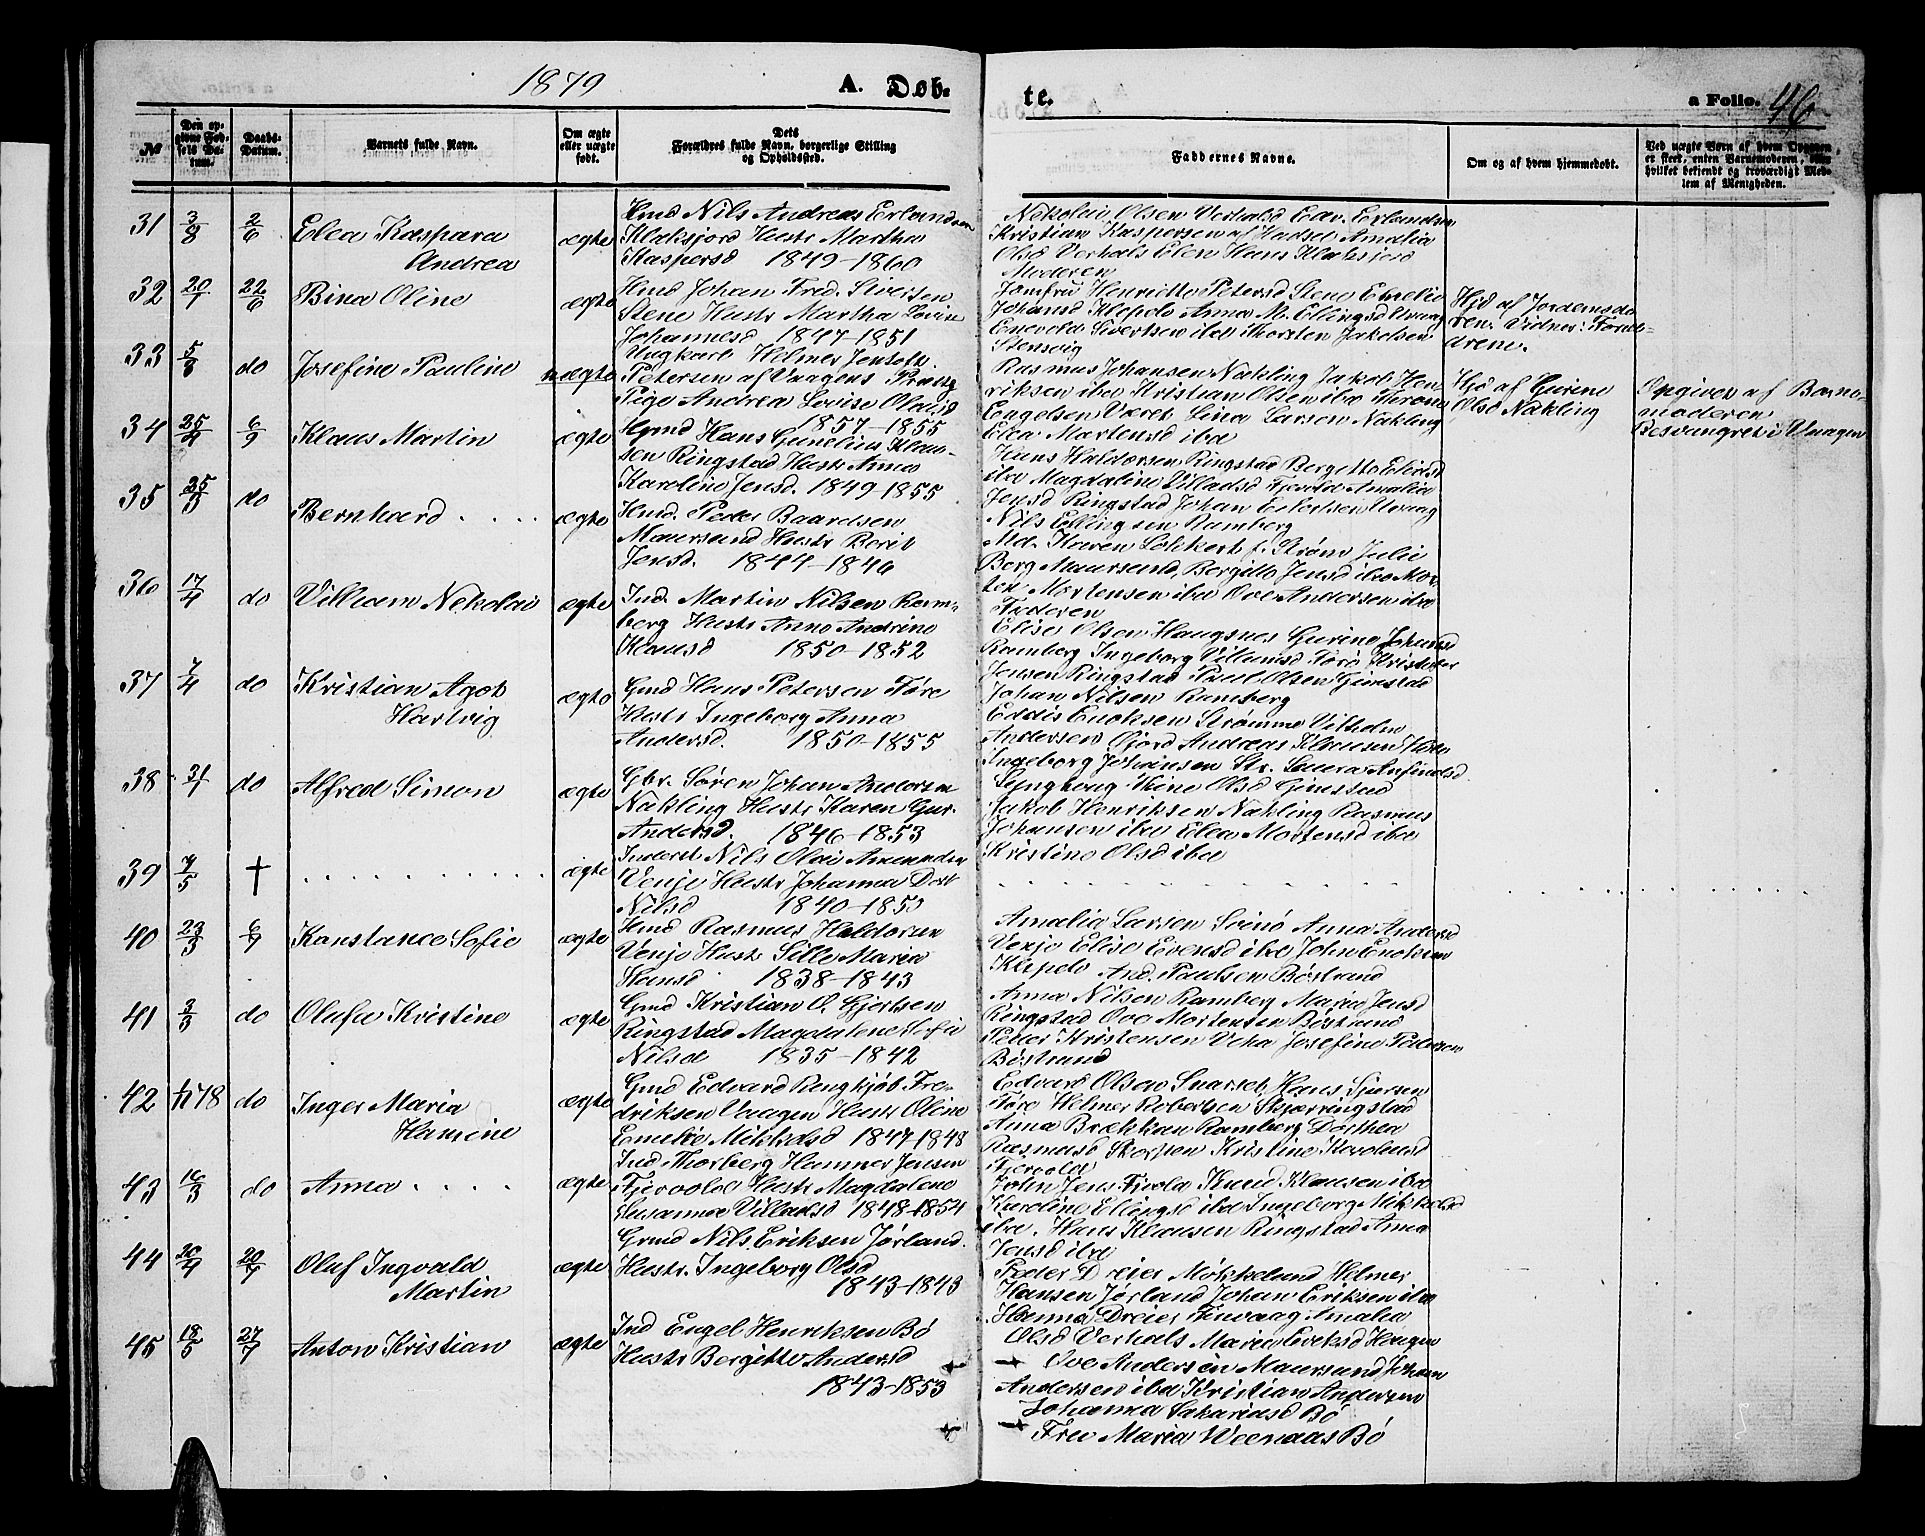 1879
A. Døb-
te.
a Folio. 46
№
Den op-
givne Fød-
sels Da-
tum.
Daabs-
Datum.
Barnets fulde Navn.
Om ægte
eller uægte
født.
Dets
Forældres fulde Navn, borgerlige Stilling
og Opholdssted.
Faddernes Navne.
Om og af hvem hjemmedøbt.
Ved uægte Børn af hvem Opgaven
er skeet, enten Barnemoderen, eller
hvilket bekjendt og troværdigt Med-
lem af Menigheden.
31 3/8 2/6 Elea Kaspara
Andrea
ægte
Hmd Nils Andreas Erlandsen
Klaksjord Hustr Martha
Kaspersd 1849-1860
Nikolai Olsen Verhals Edv. Erlandsen
Kristian Kaspersen af Hadsel Amalia
Olsd Verhals Elen Hans Klaksjord
Moderen
32 20/1 22/6 Bina Oline
ægte
Hmd Johan Fred. Sivertsen
Stene Hustr Martha Lovise
Johannesd 1847-1851
Jomfru Henriette Petersd Stene Emelie
Johansd Klepelo Anna M. Ellingsd Utvaag
Enevold Sivertsen ibd Thorsten Jakobsen
Stensvig
Hjd af Jordemode-
ren. Vidner: Foræl-
drene.
33 5/3 do Josefine Pauline
uægte
Ungkarl Helmer Jentoft
Petersen af Vaagens Præstg
Pige Andrea Lovise Olausd
1857-1855
Rasmus Johansen Nakling Jakob Hen-
riksen ibd Kristian Olsen ibd
Engelsen Været Lina Larsen Nakling
Elea Martensd ibd
Hjd af Gurine
Olsd Nakling
Opgiven af Barne-
moderen
Besvangret i Vaagen
34 25/4 6/9 Klaus Martin
ægte
Gmd Hans Gunelius Klau-
sen Ringstad Hustr Anna
Karoline Jensd. 1849-1855
Hans Haldorsen Ringstad Bergette
ibd Magdaline Villadsd Fjervold Amalia
Jensd Ringstad Johan Utvaag
Nils Ellingsen Ramberg
35 25/3 do Bernhard . . . .
ægte
Hmd. Peder Baardsen
Maursund Hustr Berit
Jensd. 1844-1846
Md. Karen Lokkert f. Strøm Julie
Berg Maursund, Bergitte Jensd ibd Mor-
ten Mortensen ibd Ove Andersen ibd
Faderen
36 17/4 do Villiam Nikolai
ægte
Ind. Martin Nilsen Ram-
berg Hustr Anne Andrine
Klausd 1850-1852
Elise Olsen Haugsnes Gurine Johansd
Ramberg Ingeborg Villumsd Føre Kristoffer
Jensen Ringstad Paul Olsen Gimstad
Johan Nilsen Ramberg
37 7/4 do Kristian Agot
Hartvig
ægte
Gmd Hans Petersen Føre
Hustr Ingeborg Anna
Andersd. 1850-1855
Eddis Enoksen Strømme Vilhelm
Andersen Fjord Andreas Klausen Føre
Ingeborg Johansen Str. Laura Arfindsd
Lynghoug Stine Olsd Gimstad
38 do Alfred Simon
ægte
Gbr. Søren Johan Andersen
Nakling Hustr Karen Gur.
Andersd. 1846-1853
Jakob Henriksen Nakling Rasmus
Johansen ibd Elea Mortensd ibd
Kristine Olsd ibd
39 7/5 † . . . . . . . . . . .
ægte
Inderst Nils Olai Amundsen
Venje Hustr Johanna Dort
Nilsd 1840-1850
40 23/3 6/7 Konstance Sofie
ægte
Hmd Rasmus Haldorsen
Venje Hustr Sille Maria
Hansd 1838-1843
Amalia Larsen Svinø Anna Andersd
Venje Elise Evensd ibd John Enoksen
Klepelo And. Paulsen Bøstrand
41 3/3 do Olufa Kristine
ægte
Gmd Kristian O. Gjertsen
Ringstad Magdalene Sofie
Nilsd 1835-1842
Anna Nilsen Ramberg Maria Jensd
Ringstad Ove Mortensen Bøstrand
Petter Kristensen Veka Josefine Pedersen
Bøstrand
42 78 do Inger Maria
Hansine
ægte
Gmd Edvard Rengkjøb Fre-
driksen Vaagen Hustr Oline
Emelie Mikkelsd 1847-1848
Edvard Olsen Snarset, Hans Sjursen
Føre Helmer Robertsen Skjærringstad
Anna Brækkan Ramberg Dorthea
Rasmusd Skorpen Kristine Karolusd
Fjervold
43 16/3 do Anna . . . . .
ægte
Ind Thorberg Hammer Jensen
Fjervold Hustr Magdalene
Susanna Villadsd 1848-1854
John Jens Fjvold Knud Klausen ibd
Karoline Ellingsd ibd Ingeborg Mikkelsd
ibd. Hans Klausen Ringstad Anna
Jensd ibd
44 20/4 20/7 Oluf Ingvald
Martin
ægte
Grmd Nils Eriksen Jørland.
Hustr. Ingeborg Olsd
1843-1843
Peder Dreier Møkkelund Helmer
Hansen Jørland Johan Eriksen ibd
Hanna Dreier Finvaag Amalia
Olsd Verhals Maria Eriksd Haugen
45 18/5 27/7 Anton Kristian
ægte
Ind Engel Henriksen Bø
Hustr Bergitte Andersd
1843-1853
Ove Andersen Maursund Johan
Andersen ibd Kristian Andersen
Johanna Sakariasd Bø
Fru Maria Weenaas Bø